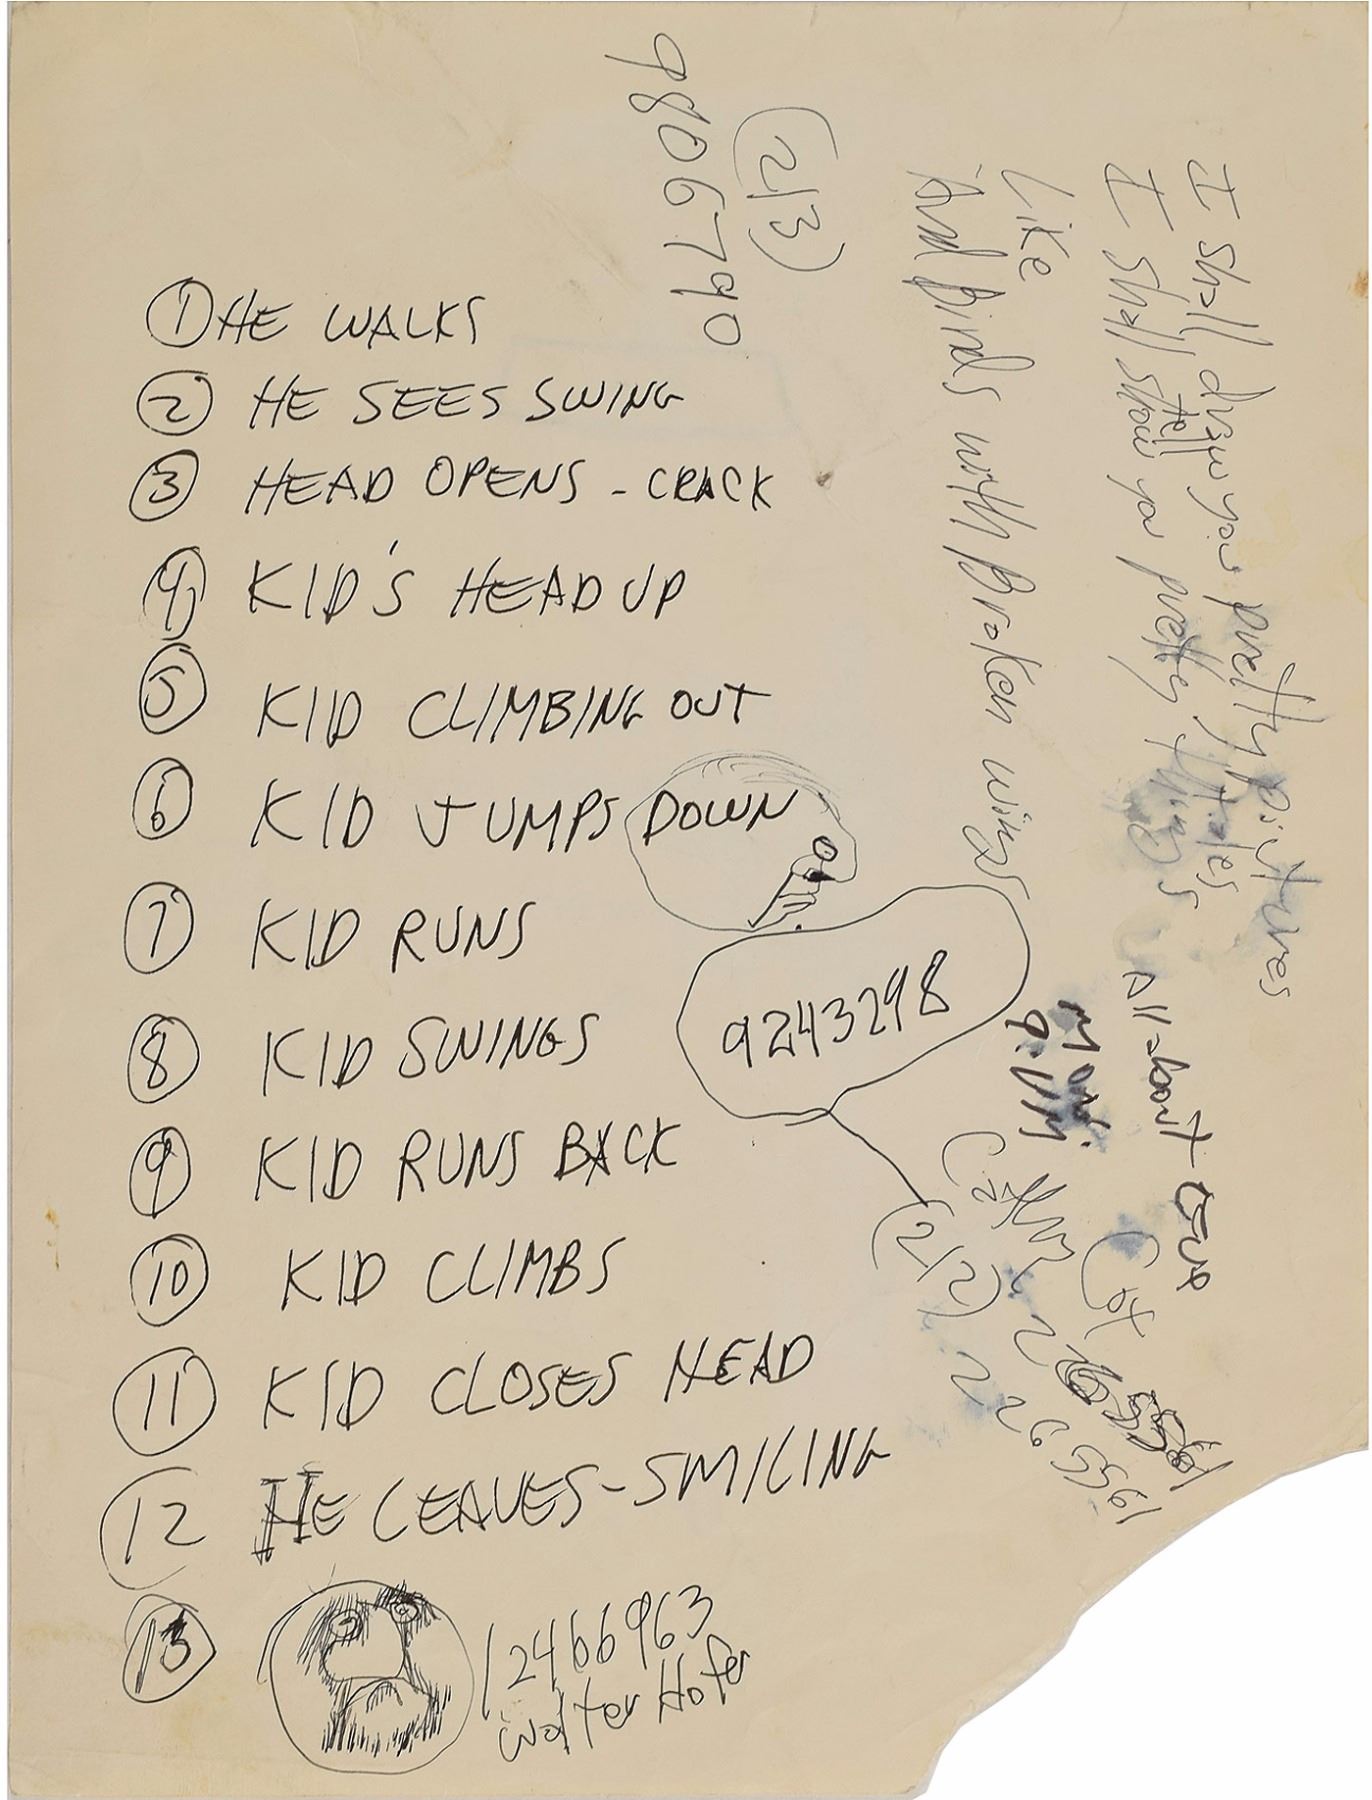 ① HE WALKS
② HE SEES SWING
③ HEAD OPENS - CRACK
④ KID'S HEAD UP
⑤ KID CLIMBING OUT
⑥ KID JUMPS DOWN
⑦ KID RUNS
⑧ KID SWINGS
⑨ KID RUNS BACK
⑩ KID CLIMBS
⑪ KID CLOSES HEAD
⑫ HE LEAVES - SMILING
⑬
12466963
Walter Hofer
(213)
9806790
9243298
(212)
I shall draw you pretty pictures
tell you pretty tales
I shall show you pretty things
All about Eve
Like
And Birds with Broken wings
2265561